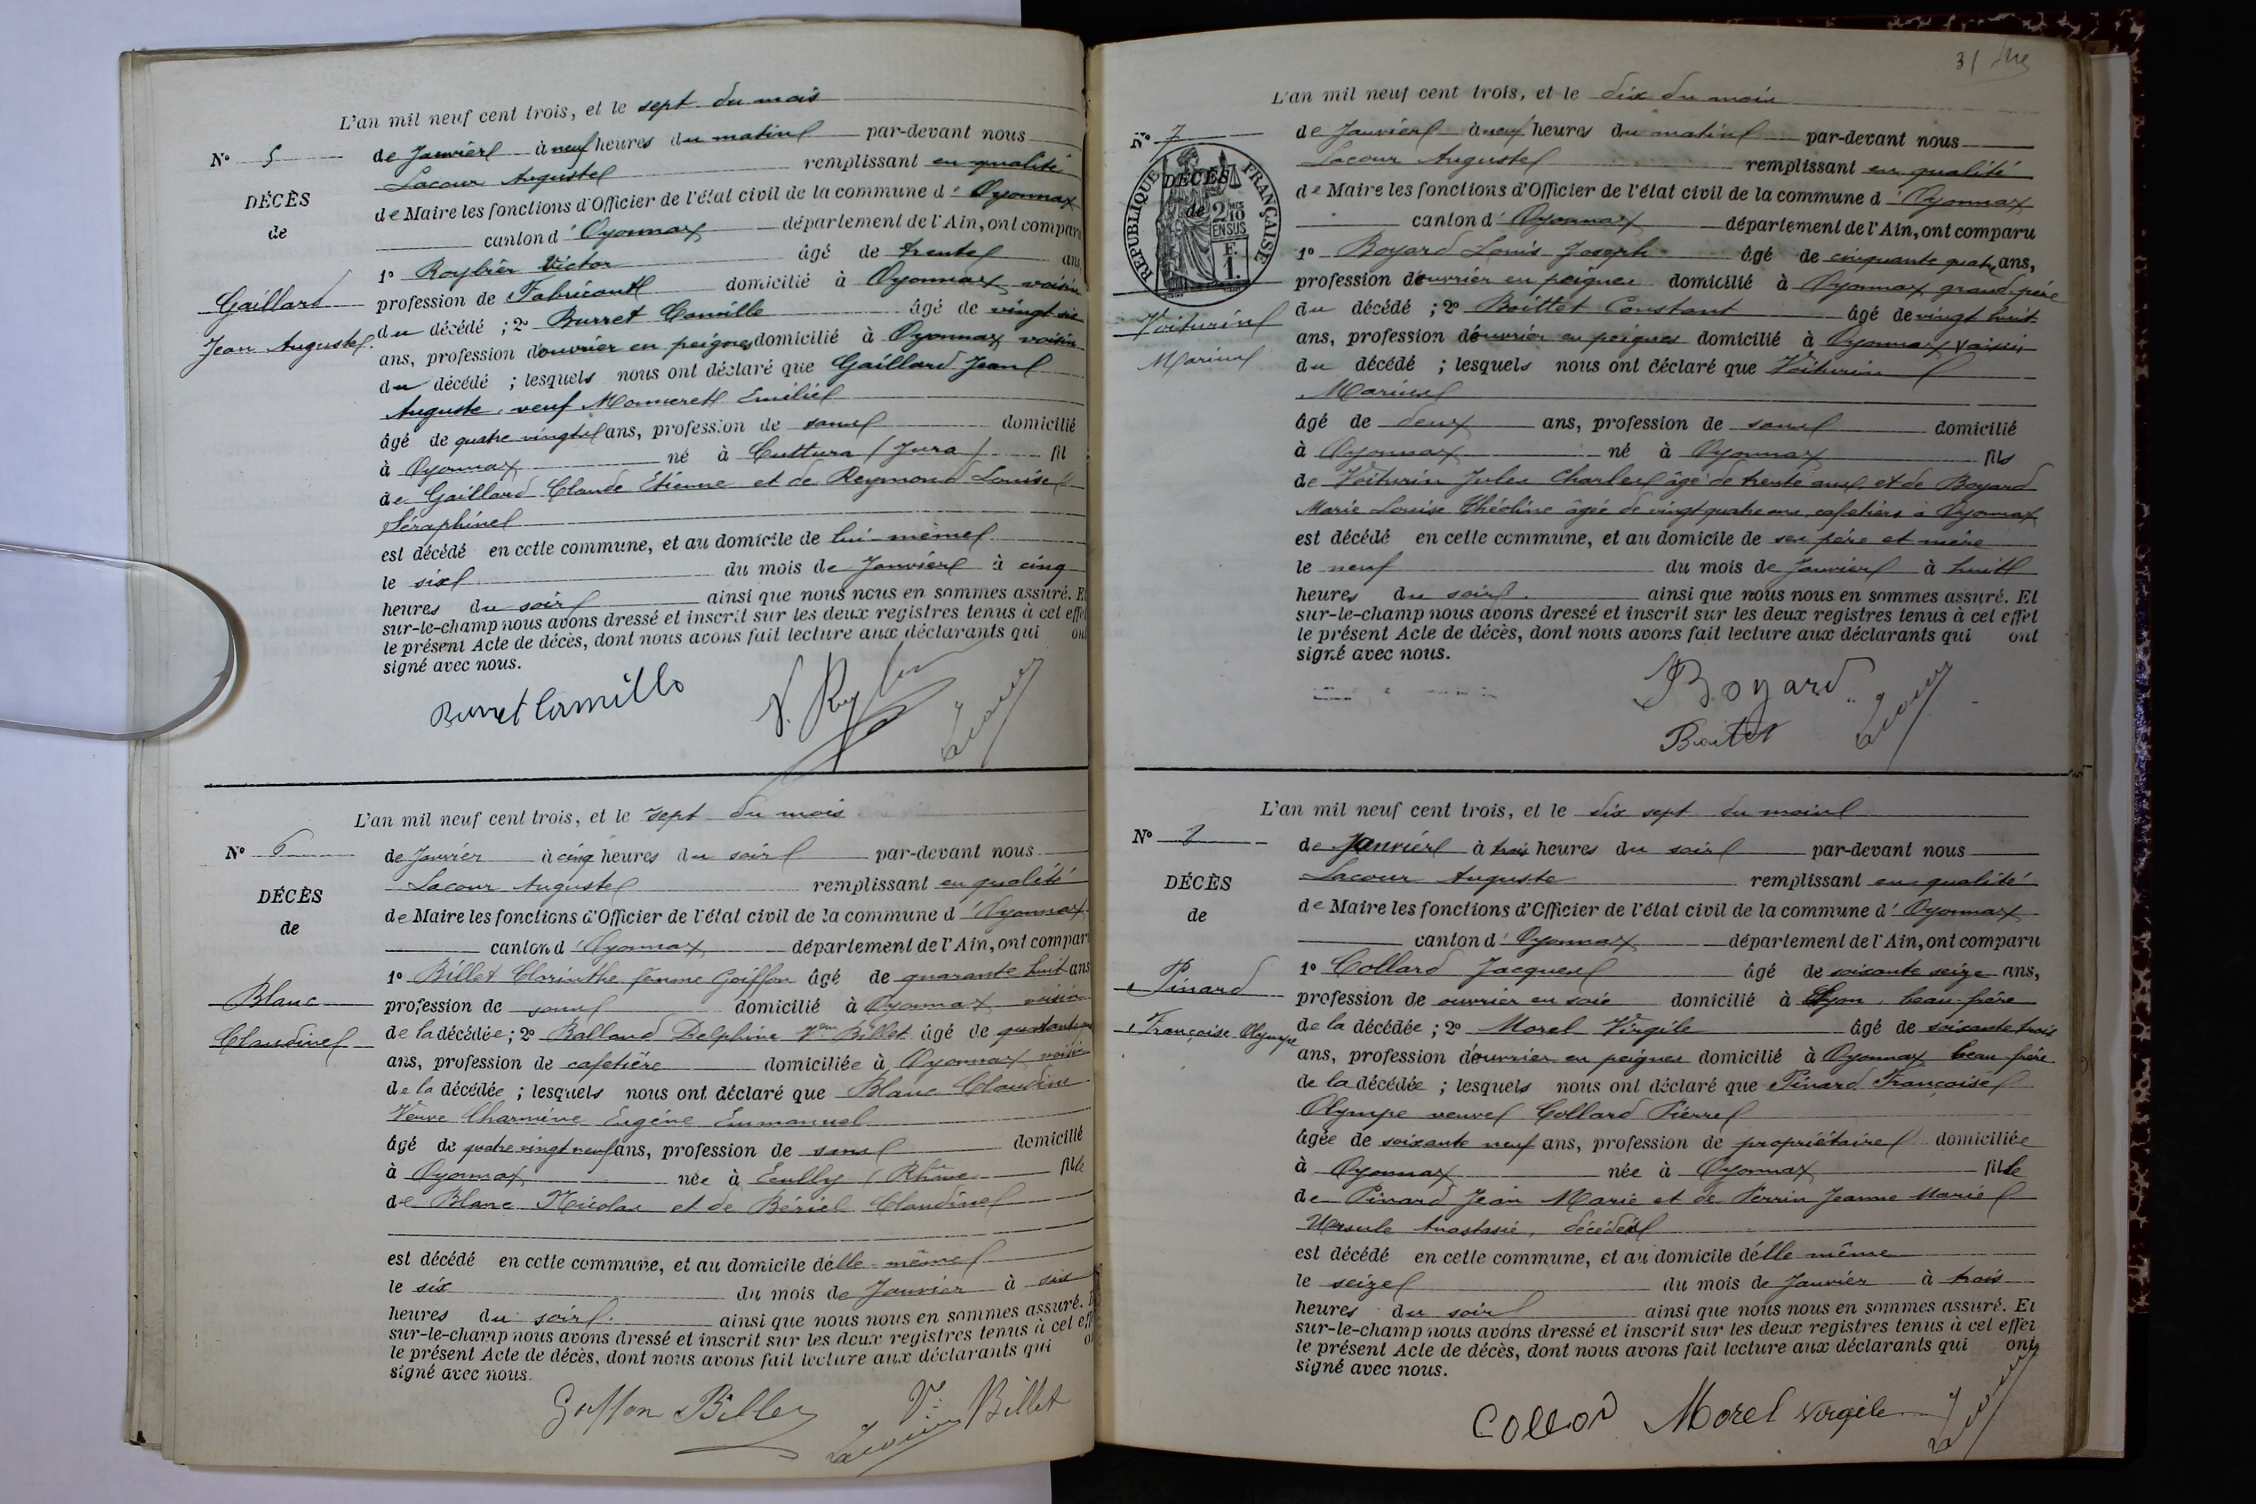 L'an mil neuf cent trois, et le sept du mois
N° 5
de Janvier à neuf heures du matin par-devant nous
Lacour Auguste remplissant en qualité
DÉCÈS
de Maire les fonctions d'Officier de l'état civil de la commune d' Oyonnax
de
canton d' Oyonnax département de l'Ain, ont comparu
1° Victor âgé de trente ans
Gaillard
profession de Fabricant domicilié à Oyonnax voisin
Jean Auguste
du décédé ; 2° Burret Camille âgé de vingt six
ans, profession d'ouvrier en peignes domicilié à Oyonnax voisin
du décédé ; lesquels nous ont déclaré que Gaillard Jean
Auguste, veuf Monneret Emilie
âgé de quatre vingt ans, profession de sans domicilié
à Oyonnax né à Cuttura (Jura) fil
de Gaillard Claude Etienne et de Reymond Louise
Séraphine
est décédé en cette commune, et au domicile de lui-même
le six du mois de Janvier à cinq
heures du soir ainsi que nous nous en sommes assuré. Et
sur-le-champ nous avons dressé et inscrit sur les deux registres tenus à cet effet
le présent Acte de décès, dont nous avons fait lecture aux déclarants qui ont
signé avec nous.
Burret Camille
L'an mil neuf cent trois, et le sept du mois
N° 6
de Janvier à cinq heures du soir par-devant nous
Lacour Auguste remplissant en qualité
DÉCÈS
de Maire les fonctions d'Officier de l'état civil de la commune d' Oyonnax
de
canton d' Oyonnax département de l'Ain, ont compar
1° Billet Clorinthe femme Goiffon âgé de quarante huit ans
Blanc
profession de sans domicilié à Oyonnax voisin
Claudine
de la décédée ; 2° Balland Delphine Vve Billet âgé de
ans, profession de cafetière domiciliée à Oyonnax voisin
de la décédée ; lesquels nous ont déclaré que Blanc Claudine
Veuve Eugène Emmanuel
âgé de quatre vingt neuf ans, profession de sans domicilié
à Oyonnax née à Ecully (Rhône fille
de Blanc Nicolas et de Bériel Claudine
est décédé en cette commune, et au domicile d'elle-même
le six du mois de Janvier à six
heures du soir. ainsi que nous nous en sommes assuré.
sur-le-champ nous avons dressé et inscrit sur les deux registres tenus à cet eff
le présent Acte de décès, dont nous avons fait lecture aux déclarants qui
signé avec nous.
Goiffon Billet Vve Billet
31
L'an mil neuf cent trois, et le dix du mois
N° 7
de Janvier à neuf heures du matin par-devant nous
Lacour Auguste remplissant en qualité
DÉCÈS
RÉPUBLIQUE FRANÇAISE
2/10 EN SUS
F. 1.
de Maire les fonctions d'Officier de l'état civil de la commune d' Oyonnax
de
canton d' Oyonnax département de l'Ain, ont comparu
1° Boyard Louis Joseph âgé de cinquante quatre ans,
profession d'ouvrier en peignes domicilié à Oyonnax grand-père
Voiturin
du décédé ; 2° Boittet Constant âgé de vingt huit
ans, profession d'ouvrier en peignes domicilié à Oyonnax voisin
Marius
du décédé ; lesquels nous ont déclaré que Voiturin
Marius
âgé de deux ans, profession de sans domicilié
à Oyonnax né à Oyonnax fils
de Voiturin Jules Charles âgé de trente ans, et de Boyard
Marie Louise Théoline âgée de vingt quatre ans, cafetiers à Oyonnax
est décédé en cette commune, et au domicile de ses père et mère
le neuf du mois de Janvier à huit
heures du soir. ainsi que nous nous en sommes assuré. Et
sur-le-champ nous avons dressé et inscrit sur les deux registres tenus à cet effet
le présent Acte de décès, dont nous avons fait lecture aux déclarants qui ont
signé avec nous.
Boyard
L'an mil neuf cent trois, et le dix sept du mois
N° 8
de Janvier à trois heures du soir par-devant nous
Lacour Auguste remplissant en qualité
DÉCÈS
de Maire les fonctions d'Officier de l'état civil de la commune d' Oyonnax
de
canton d' Oyonnax département de l'Ain, ont comparu
1° Collard Jacques âgé de soixante seize ans,
Pinard
profession de ouvrier en soie domicilié à Lyon, beau-frère
Françoise Olympe
de la décédée ; 2° Morel Virgile âgé de soixante trois
ans, profession d'ouvrier en peignes domicilié à Oyonnax beau frère
de la décédée ; lesquels nous ont déclaré que Pinard Françoise
Olympe veuve Collard Pierre
âgée de soixante neuf ans, profession de propriétaire domiciliée
à Oyonnax née à Oyonnax fille
de Pinard Jean Marie et de Perrin Jeanne Marie
Ursule Anastasie, décédés
est décédé en cette commune, et au domicile d'elle même
le seize du mois de Janvier à trois
heures du soir ainsi que nous nous en sommes assuré. Et
sur-le-champ nous avons dressé et inscrit sur les deux registres tenus à cet effet
le présent Acte de décès, dont nous avons fait lecture aux déclarants qui ont
signé avec nous.
Morel Virgile